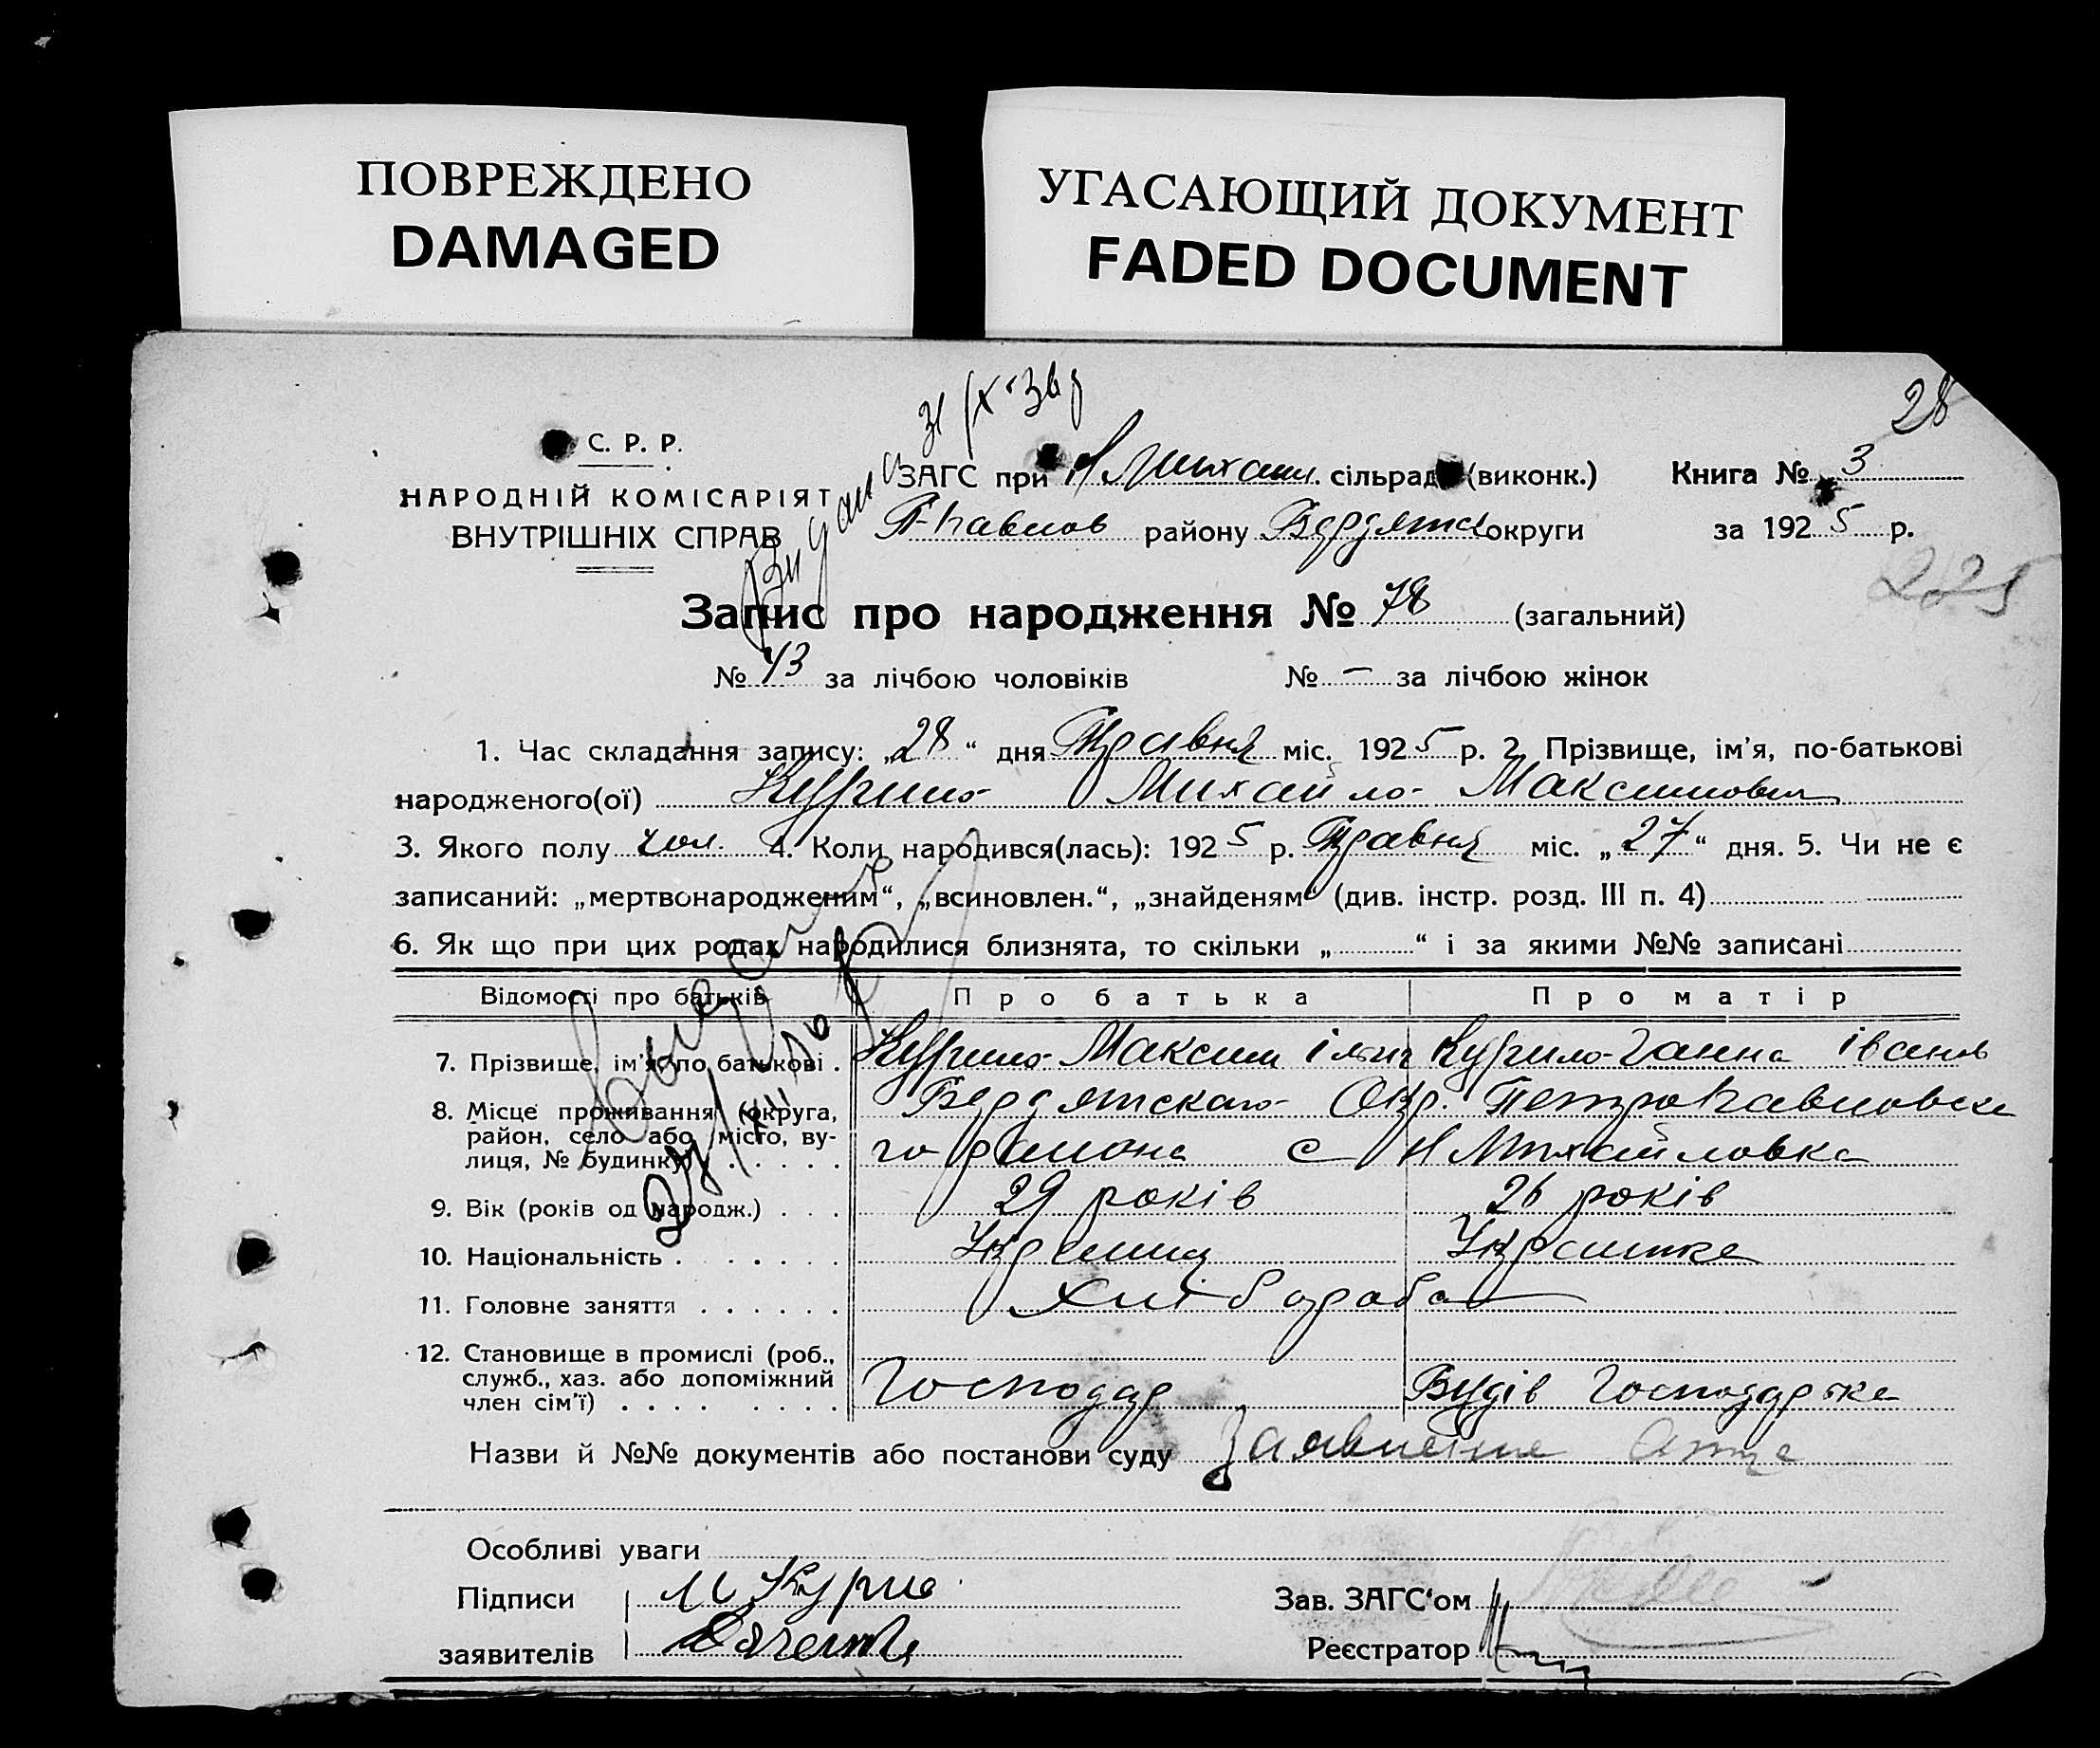 ПОВРЕЖДЕНО
DAMAGED
УГАСАЮЩИЙ ДОКУМЕНТ
FADED DOCUMENT
28
С. Р. Р.
НАРОДНІЙ КОМІСАРІЯТ
ВНУТРІШНІХ СПРАВ
ЗАГС при Н Михайл. сільрад (виконк.) Книга № 3
П-Павлов району Бердянск округи за 1925 р.
225
Запис про народження № 78 (загальний)
№ 43 за лічбою чоловіків № – за лічбою жінок
1. Час складання запису: „28“ дня Травня міс. 1925 р. 2. Прізвище, ім'я, по-батькові
народженого(ої) Курило Михайло Максимович
3. Якого полу чол. 4. Коли народився(лась): 1925 р. Травня міс. „27“ дня. 5. Чи не є
записаний: „мертвонародженим“, „всиновлен.“, „знайденям“ (див. інстр. розд. III п. 4)
6. Як що при цих родах народилися близнята, то скільки „ “ і за якими №№ записані
Відомості про батьків Про батька Про матір
7. Прізвище, ім'я, по батькові . Курило Максим Ілич Курило Ганна Іванов
8. Місце проживання (округа, район, село або місто, вулиця, № будинку) Бердянскаго Окр. Петропавловска
го района с Н Михайловка
9. Вік (років од народж.) . . . 29 років 26 років
10. Національність . . . . . . Українц Українка
11. Головне заняття . . . . . . Хліборобст
12. Становище в промислі (роб.,
служб., хаз. або допоміжний
член сім'ї) . . . . . . . . Господар Видів Господарка
Назви й №№ документів або постанови суду Заявление Отца
Особливі уваги
Підписи М Курило
заявителів
Зав. ЗАГС'ом
Реєстратор
Видано